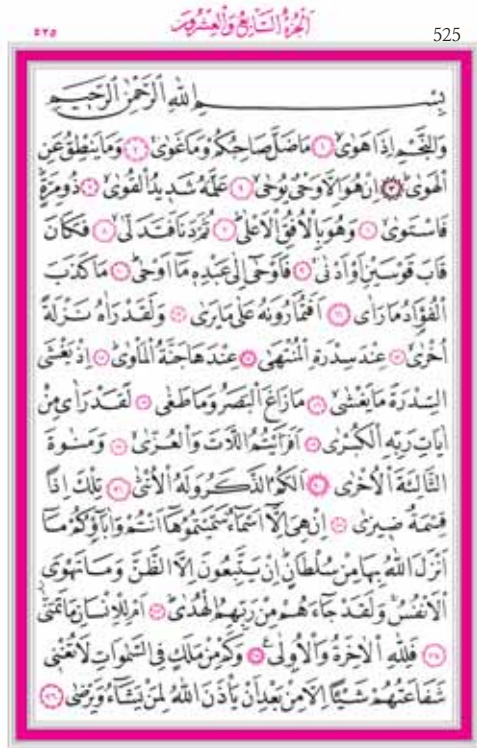 اَلْجُزْءُ السَّابِعُ وَالْعِشْرُونَ
٥٢٥ 525
بِسْمِ اللهِ الرَّحْمٰنِ الرَّحِيمِ
وَالنَّجْمِ اِذَا هَوٰىۙ ﴿١﴾ مَا ضَلَّ صَاحِبُكُمْ وَمَا غَوٰىۚ ﴿٢﴾ وَمَا يَنْطِقُ عَنِ
الْهَوٰىۜ ﴿٣﴾ اِنْ هُوَ اِلَّا وَحْيٌ يُوحٰىۙ ﴿٤﴾ عَلَّمَهُ شَدِيدُ الْقُوٰىۙ ﴿٥﴾ ذُو مِرَّةٍۜ
فَاسْتَوٰىۙ ﴿٦﴾ وَهُوَ بِالْاُفُقِ الْاَعْلٰىۜ ﴿٧﴾ ثُمَّ دَنَا فَتَدَلّٰىۙ ﴿٨﴾ فَكَانَ
قَابَ قَوْسَيْنِ اَوْ اَدْنٰىۚ ﴿٩﴾ فَاَوْحٰٓى اِلٰى عَبْدِهٖ مَٓا اَوْحٰىۜ ﴿١٠﴾ مَا كَذَبَ
الْفُؤٰادُ مَا رَاٰى ﴿١١﴾ اَفَتُمَارُونَهُ عَلٰى مَا يَرٰى ﴿١٢﴾ وَلَقَدْ رَاٰهُ نَزْلَةً
اُخْرٰىۙ ﴿١٣﴾ عِنْدَ سِدْرَةِ الْمُنْتَهٰى ﴿١٤﴾ عِنْدَهَا جَنَّةُ الْمَأْوٰىۜ ﴿١٥﴾ اِذْ يَغْشَى
السِّدْرَةَ مَا يَغْشٰىۙ ﴿١٦﴾ مَا زَاغَ الْبَصَرُ وَمَا طَغٰى ﴿١٧﴾ لَقَدْ رَاٰى مِنْ
اٰيَاتِ رَبِّهِ الْكُبْرٰى ﴿١٨﴾ اَفَرَاَيْتُمُ اللَّاتَ وَالْعُزّٰىۙ ﴿١٩﴾ وَمَنٰوةَ
الثَّالِثَةَ الْاُخْرٰى ﴿٢٠﴾ اَلَكُمُ الذَّكَرُ وَلَهُ الْاُنْثٰى ﴿٢١﴾ تِلْكَ اِذًا
قِسْمَةٌ ضِيزٰى ﴿٢٢﴾ اِنْ هِيَ اِلَّٓا اَسْمَٓاءٌ سَمَّيْتُمُوهَٓا اَنْتُمْ وَاٰبَٓاؤُ۬كُمْ مَٓا
اَنْزَلَ اللهُ بِهَا مِنْ سُلْطَانٍۜ اِنْ يَتَّبِعُونَ اِلَّا الظَّنَّ وَمَا تَهْوَى
الْاَنْفُسُۚ وَلَقَدْ جَٓاءَهُمْ مِنْ رَبِّهِمُ الْهُدٰىۜ ﴿٢٣﴾ اَمْ لِلْاِنْسَانِ مَا تَمَنّٰىۘ
﴿٢٤﴾ فَلِلّٰهِ الْاٰخِرَةُ وَالْاُو۫لٰى۟ ﴿٢٥﴾ وَكَمْ مِنْ مَلَكٍ فِي السَّمٰوَاتِ لَا تُغْنٖى
شَفَاعَتُهُمْ شَيْـًٔا اِلَّا مِنْ بَعْدِ اَنْ يَأْذَنَ اللهُ لِمَنْ يَشَٓاءُ وَيَرْضٰى ﴿٢٦﴾